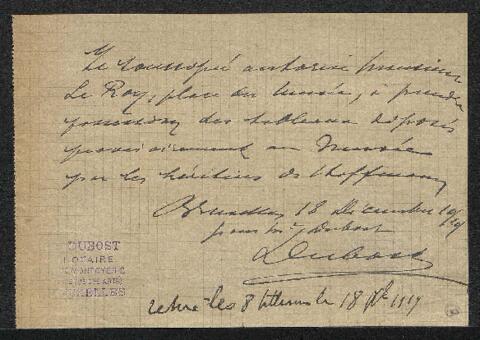 Le soussigné autorise Monsieur
Le Roy, place du Musée, à prendre
possession des tableaux déposés
provisoirement au Musée
par les héritiers de Hoffmann
Bruxelles 18 Décembre 1919
pour Me Dubost
LDubost
DUBOST
NOTAIRE
IXELLES
les 8 18 Xbre 1919